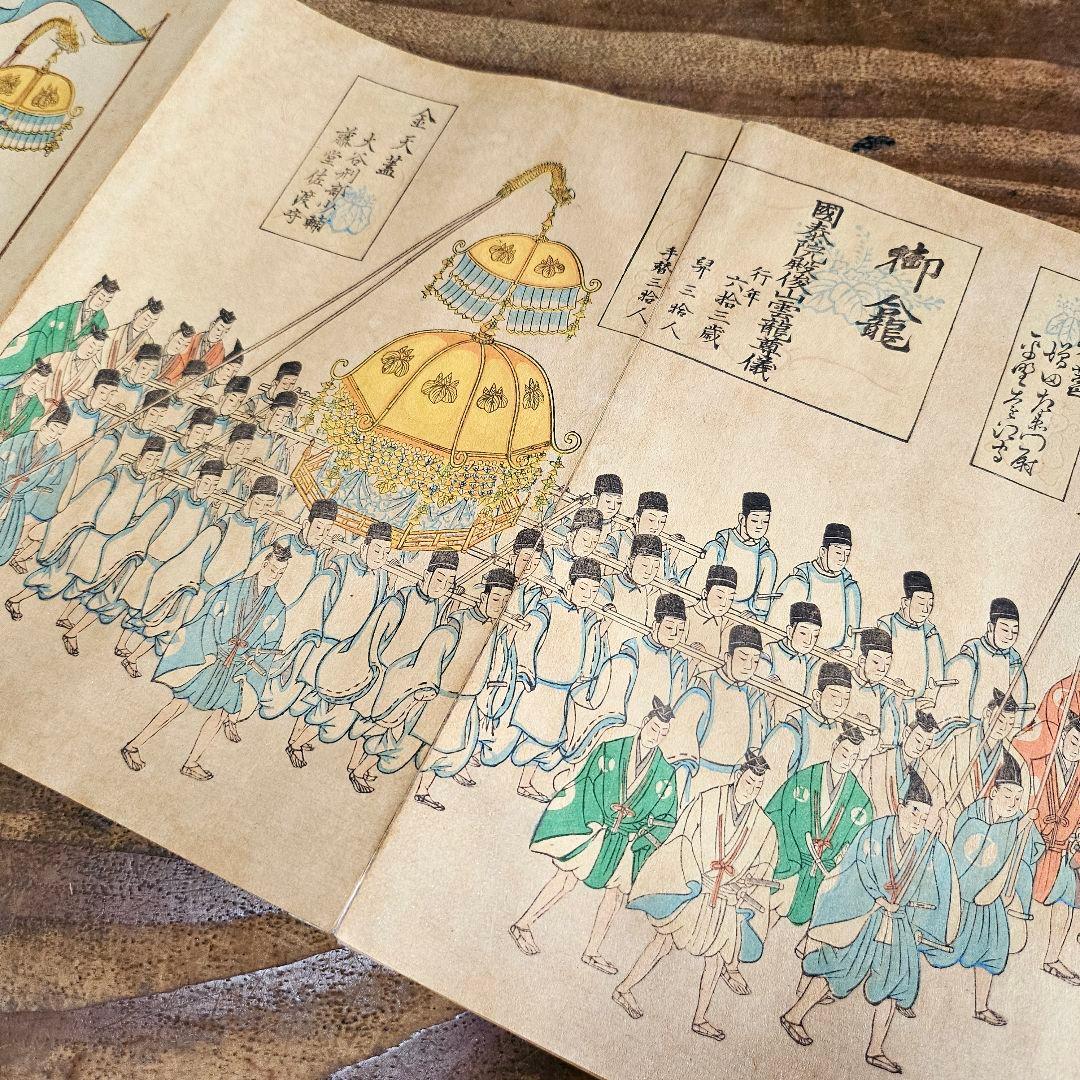 蓋
増田右衛門尉
御龕
國泰院殿俊山雲龍尊儀
行年
六拾三歳
舁 三拾人
手替三拾人
金天蓋
大谷刑部少輔
藤堂佐渡守